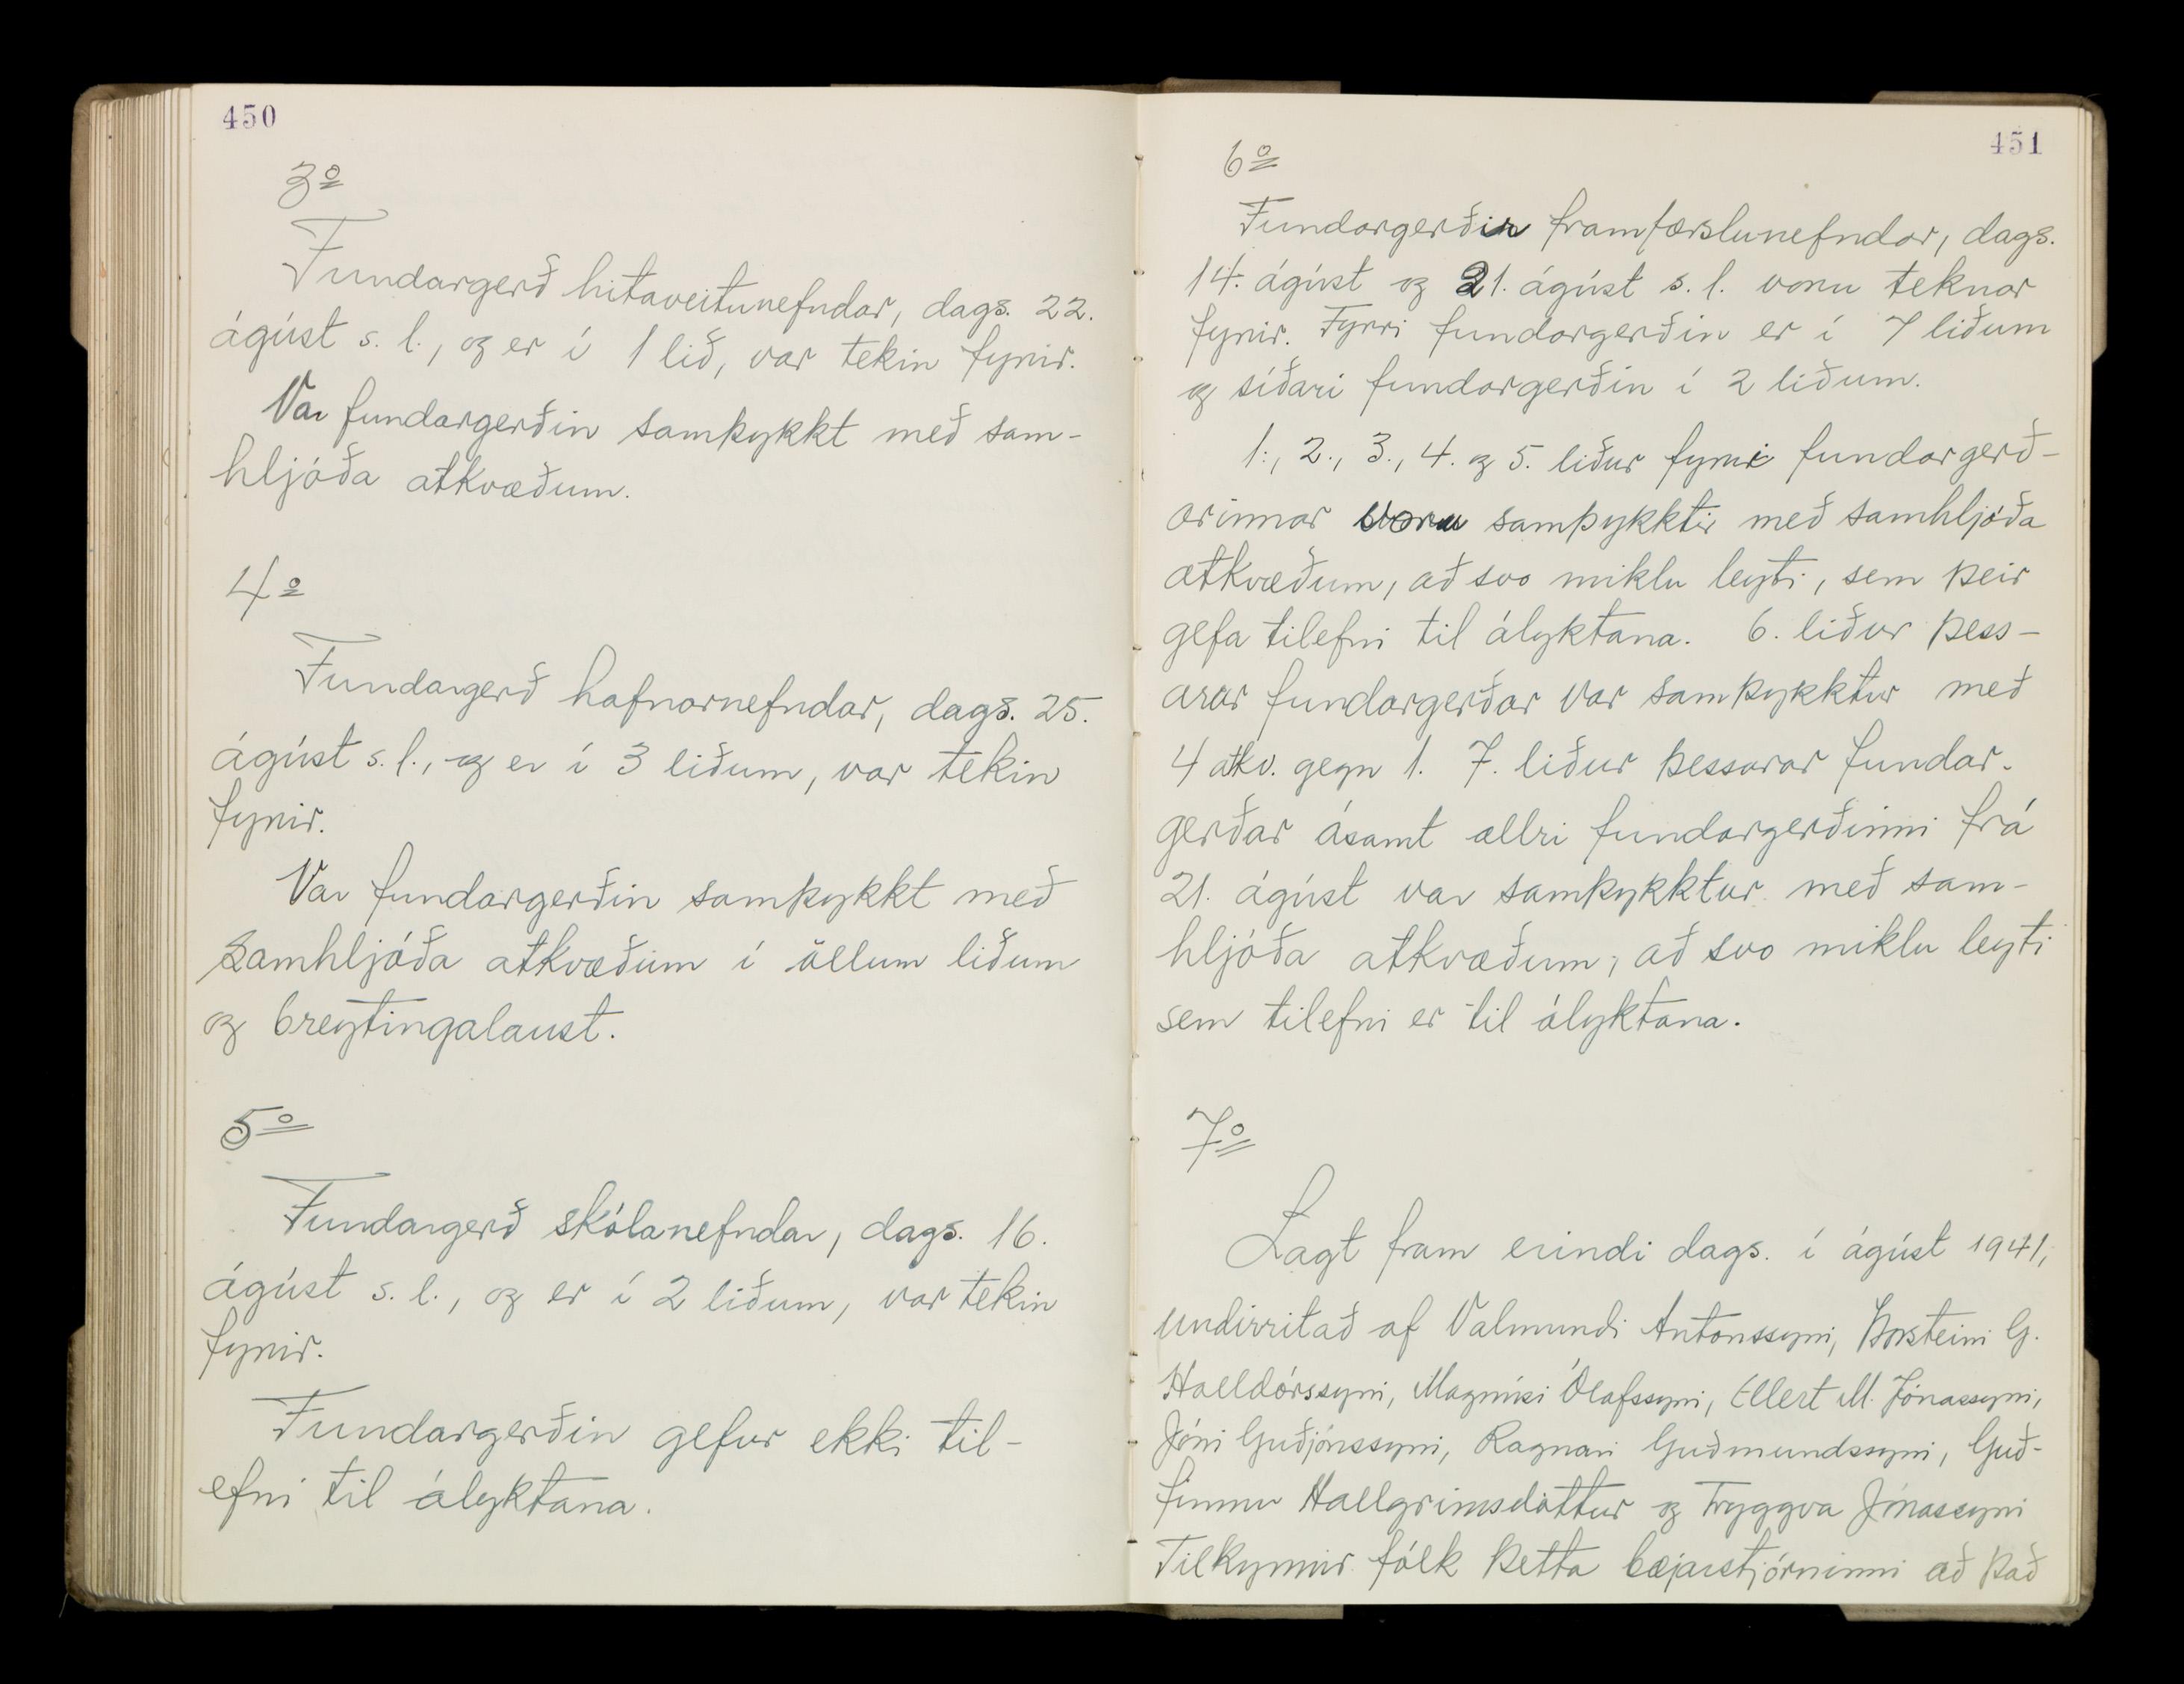 450
3º
Fundargerð hitaveitunefndar, dags. 22.
ágúst s. l., og er í 1 lið, var tekin fyrir.
Var fundargerðin samþykkt með sam-
hljóða atkvæðum.
4º
Fundargerð hafnarnefndar, dags. 25.
ágúst s. l., og er í 3 liðum, var tekin
fyrir.
Var fundargerðin samþykkt með
samhljóða atkvæðum í öllum liðum
og breytingalaust.
5º
Fundargerð skólanefndar, dags. 16.
ágúst s. l., og er í 2 liðum, var tekin
fyrir.
Fundargerðin gefur ekki til-
efni til ályktana.
451
6º
Fundargerðir framfærslunefndar, dags.
14. ágúst og 21. ágúst s. l. voru teknar
fyrir. Fyrri fundargerðin er í 7 liðum
og síðari fundargerðin í 2 liðum.
1., 2., 3., 4. og 5. liður fyrri fundargerð-
arinnar voru samþykktir með samhljóða
atkvæðum, að svo miklu leyti, sem þeir
gefa tilefni til ályktana. 6. liður þess-
arar fundargerðar var samþykktur með
4 atkv. gegn 1. 7. liður þessarar fundar-
gerðar ásamt allri fundargerðinni frá
21. ágúst var samþykktur með sam-
hljóða atkvæðum, að svo miklu leyti
sem tilefni er til ályktana.
7º
Lagt fram erindi dags. í ágúst 1941,
undirritað af Valmundi Antonssyni, Þorsteini G.
Halldórssyni, Magnúsi Ólafssyni, Ellert M. Jónassyni,
Jóni Guðjónssyni, Ragnari Guðmundssyni, Guð-
finnu Hallgrímsdóttur og Tryggva Jónassyni
Tilkynnir fólk þetta bæjarstjórninni að það